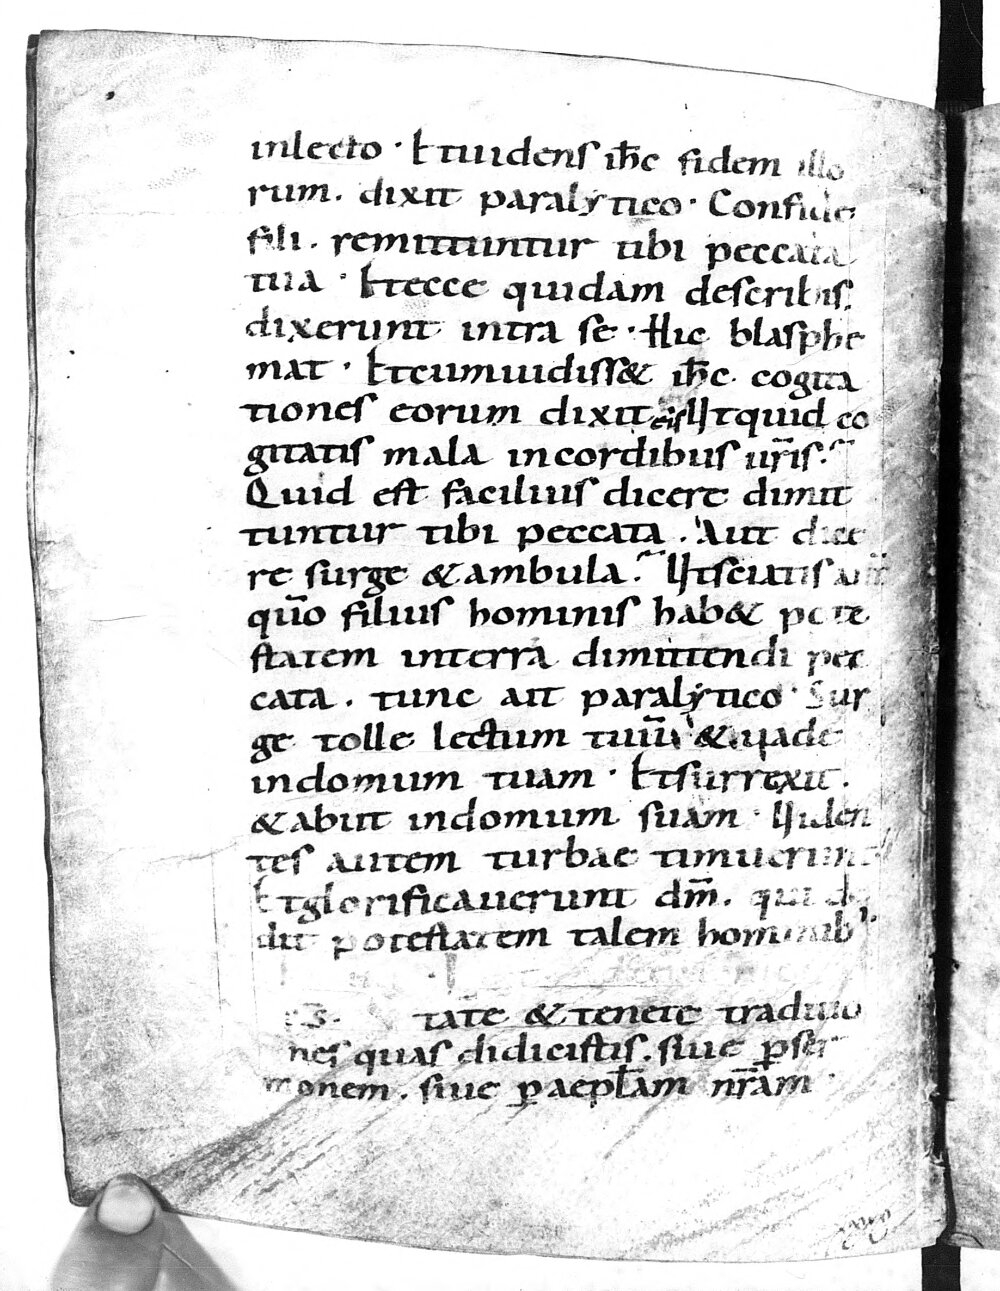 inlecto · Etuidens ih̄c fidem illo
rum. dixit paralytico · Confide
fili. remittuntur tibi peccata
tua · Etecce quidam describis;
dixerunt intra se · Hic blasphe
mat · Etcumuidiss& ih̄c cogita
tiones eorum dixit eis Utquid co
gitatis mala incordibus ur̄is.
Quid est facilius dicere dimit
tuntur tibi peccata. Aut dice
re surge &ambula. Utsciatis aut̄
qūo filius hominis hab& pote
statem interra dimittendi pec
cata. tunc ait paralytico · Sur
ge tolle lectum tuū &uade
indomum tuam · Etsurrexit.
&abiit indomum suam · Uiden
tes autem turbae timuerunt
Etglorificauerunt dm̄. qui de
dit potestatem talem hominib;
tate &tenete traditio
nes quas didicistis. siue ꝑser
monem. siue ꝑaepl̄am nr̄am ·